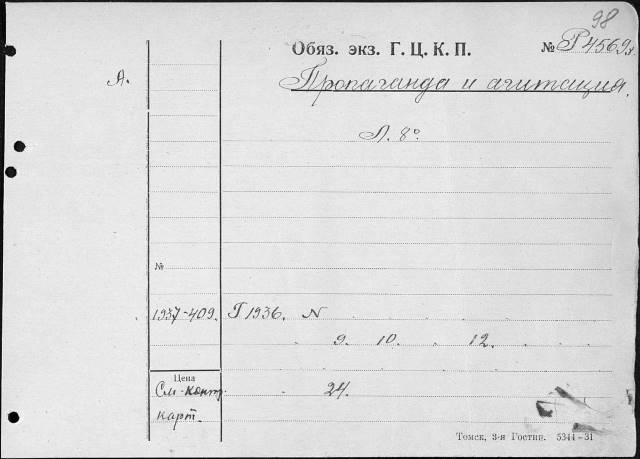 98
Обяз. экз. Г. Ц. К. П. № Р4569
А. Пропаганда и агитация.
Л. 8°
№
1937-409. Г 1936. N
9. 10. 12.
Цена
См. контр. 24.
карт.
Томск, 3-я Гостип. 5344-31